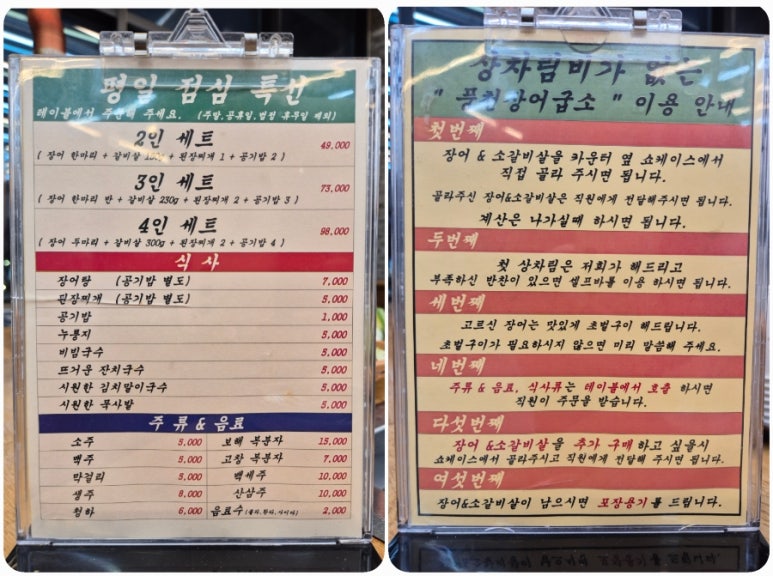 평일 점심 특선
테이블에서 주문해 주세요. (주말,공휴일,법정 휴무일 제외)
2인 세트
49,000
( 장어 한마리 + 갈비살 150g + 된장찌개 1 + 공기밥 2 )
3인 세트
73,000
( 장어 한마리 반 + 갈비살 230g + 된장찌개 2 + 공기밥 3 )
4인 세트
98,000
( 장어 두마리 + 갈비살 300g + 된장찌개 2 + 공기밥 4 )
식 사
장어탕 (공기밥 별도) 7,000
된장찌개 (공기밥 별도) 5,000
공기밥 1,000
누룽지 5,000
비빔국수 5,000
뜨거운 잔치국수 5,000
시원한 김치말이국수 5,000
시원한 묵사발 5,000
주 류 & 음 료
소주 5,000 보해 복분자 15,000
맥주 5,000 고창 복분자 7,000
막걸리 5,000 백세주 10,000
생주 8,000 산삼주 10,000
청하 6,000 음료수 (콜라, 환타, 사이다) 2,000
상차림비가 없는
" 풍천장어굽소 " 이용 안내
첫번째
장어 & 소갈비살을 카운터 옆 쇼케이스에서
직접 골라 주시면 됩니다.
골라주신 장어&소갈비살은 직원에게 전달해주시면 됩니다.
계산은 나가실때 하시면 됩니다.
두번째
첫 상차림은 저희가 해드리고
부족하신 반찬이 있으면 셀프바를 이용 하시면 됩니다.
세번째
고르신 장어는 맛있게 초벌구이 해드립니다.
초벌구이가 필요하시지 않으면 미리 말씀해 주세요.
네번째
주류 & 음료, 식사류는 테이블에서 호출 하시면
직원이 주문을 받습니다.
다섯번째
장어 &소갈비살을 추가 구매 하고 싶을시
쇼케이스에서 골라주시고 직원에게 전달해 주시면 됩니다.
여섯번째
장어&소갈비살이 남으시면 포장용기를 드립니다.